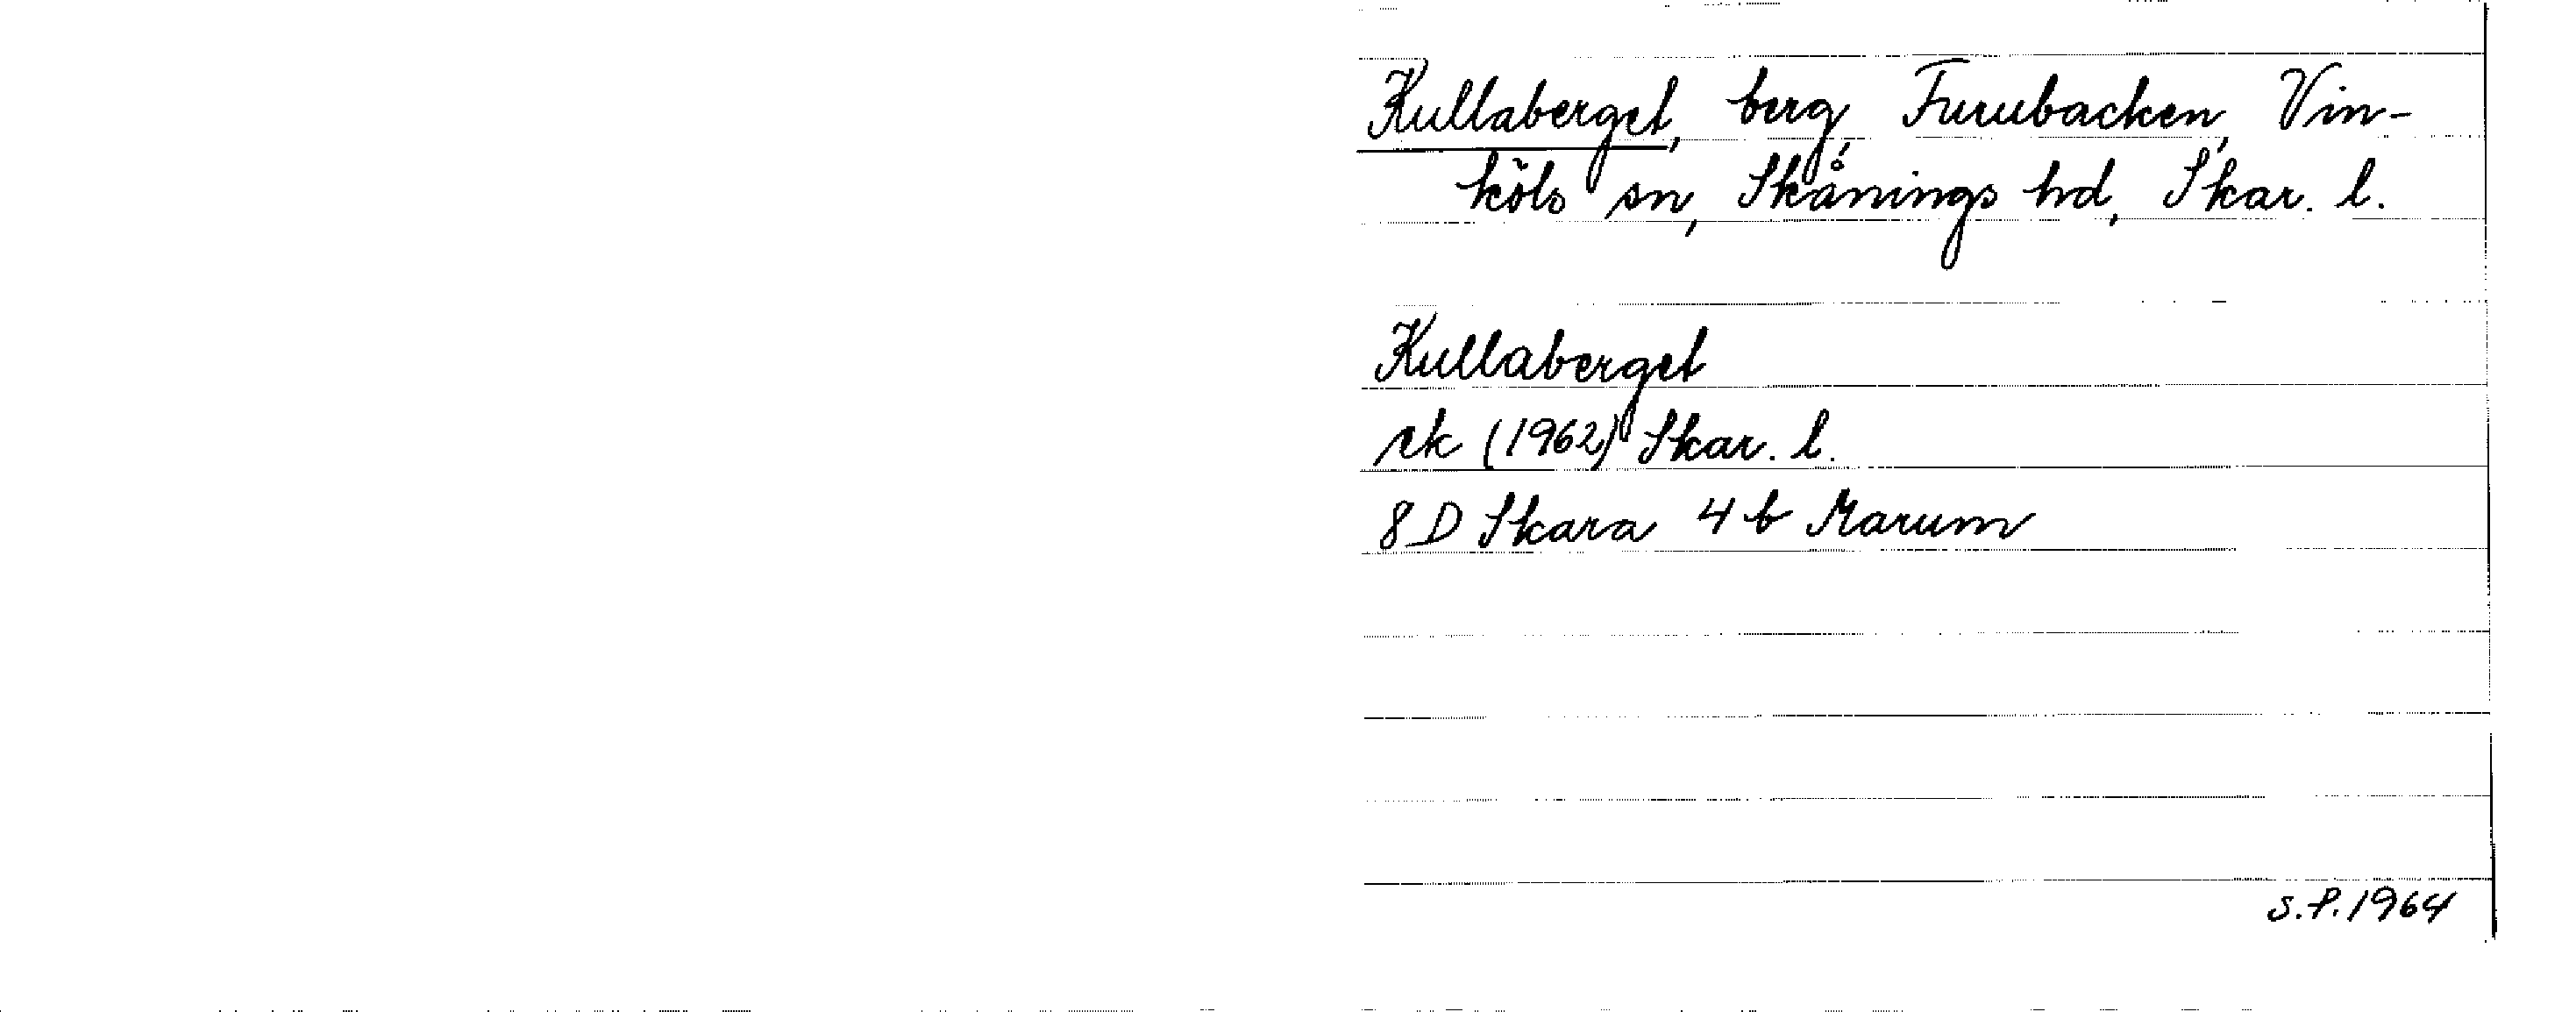 Kullaberget, berg, Furubacken, Vin-
köls sn, Skånings hd, Skar. l.
Kullaberget
rk (1962) Skar. l.
8D Skara 4b Marum
S.P. 1964